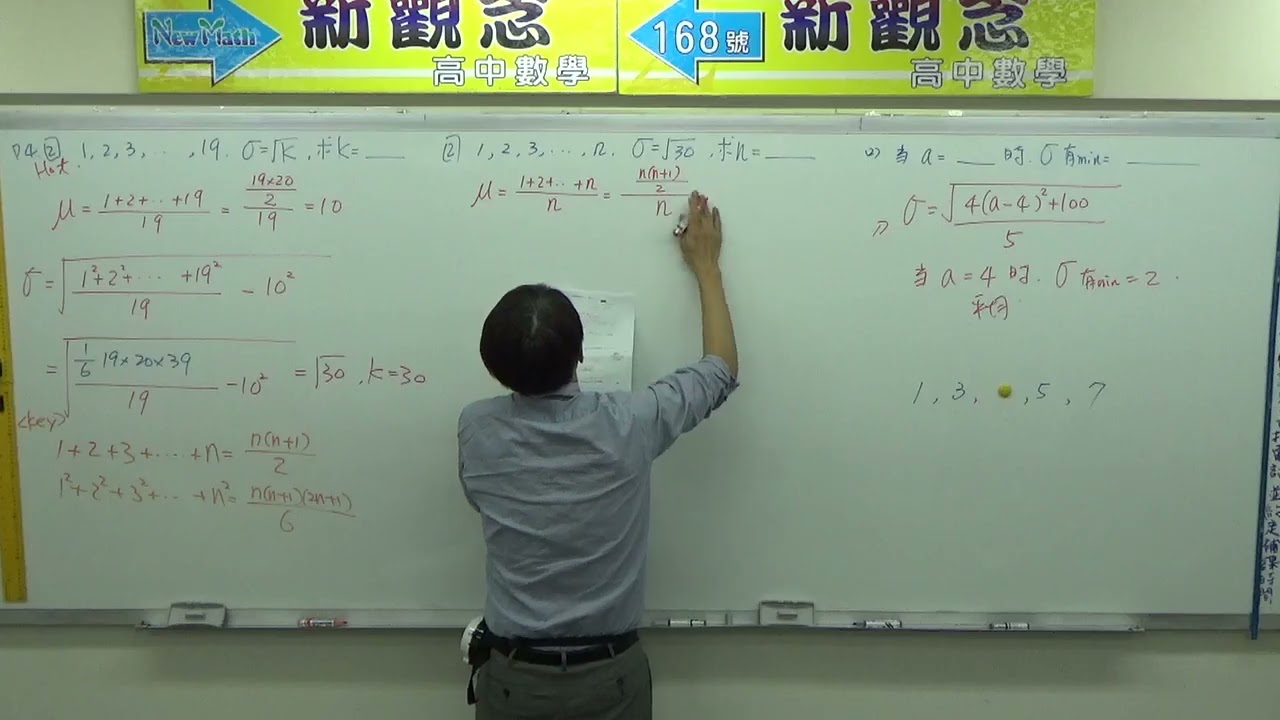 New Math
新觀念
高中數學
168號
新觀念
高中數學
P4 [2] 1, 2, 3, ⋯, 19. σ=√k, 求k=____
Hot.
μ = (1+2+⋯+19)/19 = (19×20/2)/19 = 10
σ = √((1²+2²+⋯+19²)/19 − 10²)
= √((1/6 19×20×39)/19 − 10²) = √30, k=30
<key>
1+2+3+⋯+n = n(n+1)/2
1²+2²+3²+⋯+n² = n(n+1)(2n+1)/6
[2] 1, 2, 3, ⋯, n. σ=√30, 求n=____
μ = (1+2+⋯+n)/n = (n(n+1)/2)/n
(2) 當 a=____ 時. σ有min=____
σ = √(4(a−4)²+100)/5
當 a=4 時. σ有min=2.
1, 3, , 5, 7